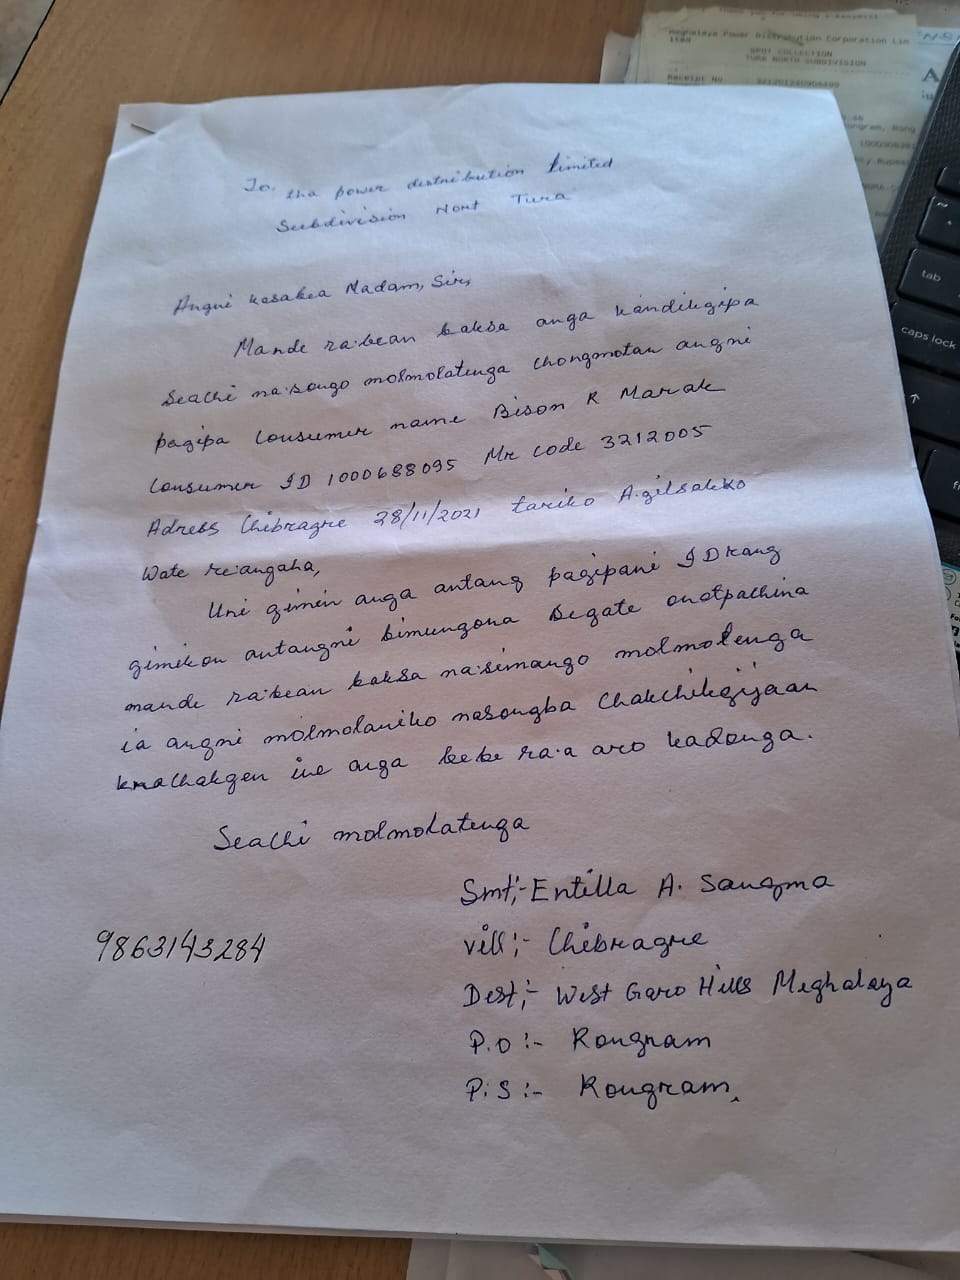 Meghalaya Power Distribution Corporation Lim
ited
SPOT COLLECTION
TURA NORTH SUBDIVISION
Receipt No.
To, tha power destribution Limited
Subdivision Nort Tura
Angni kasakea Madam, Sir,
Mande ra·bean baksa anga kandikgipa
Seachi na·songo molmolatenga chongmotan angni
pagipa Consumer name Bison R Marak
Consumer ID 1000688095 Mr code 3212005
Adress Chibragre 28/11/2021 tariko A.gilsakko
Wate re·angaha,
Uni gimin anga antang pagipani ID kang
gimikon antangni bimungona Segate onatpachina
mande ra·bean baksa na·simango molmolenga
ia angni molmolaniko nasongba Chakchikgijaan
knachakgen ine anga bebe ra·a aro kadonga.
Seachi molmolatenga
Smt;- Entilla A. Sangma
9863143284
vill;- Chibragre
Dest;- West Garo Hills Meghalaya
P.O :- Rongram
P.S :- Rongram.
tab
caps lock